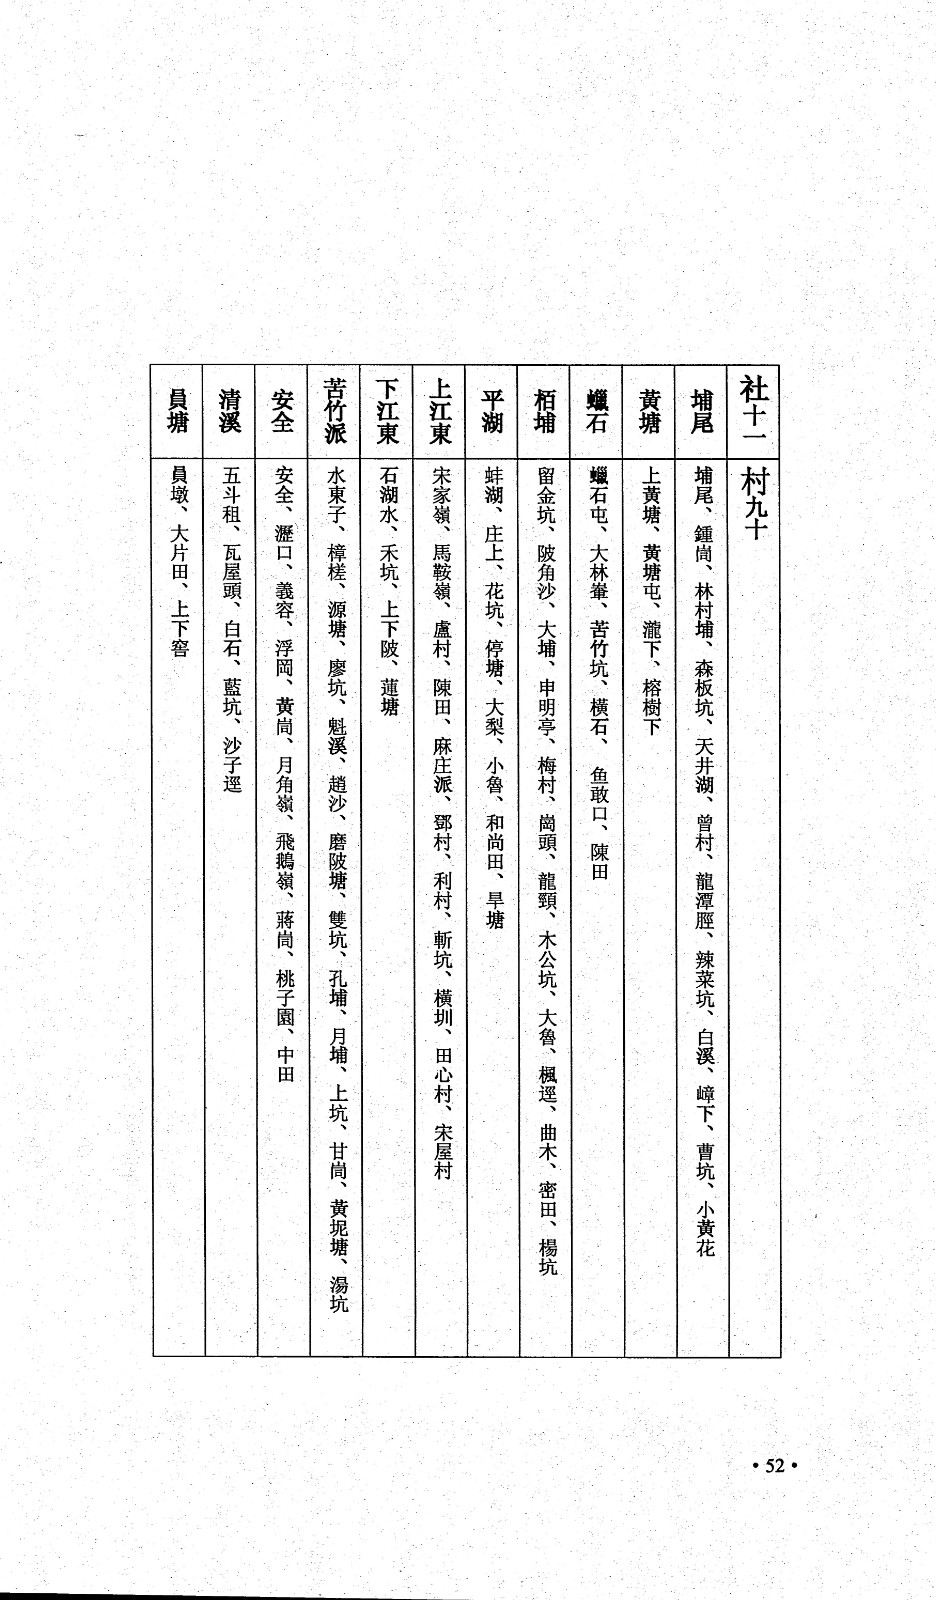 社十一 村九十
埔尾 埔尾、鍾崗、林村埔、森板坑、天井湖、曾村、龍潭脛、辣菜坑、白溪、嶂下、曹坑、小黃花
黃塘 上黃塘、黃塘屯、瀧下、榕樹下
蠟石 蠟石屯、大林輋、苦竹坑、橫石、鱼敢口、陳田
栢埔 留金坑、陂角沙、大埔、申明亭、梅村、崗頭、龍頸、木公坑、大魯、楓逕、曲木、密田、楊坑
平湖 蚌湖、庄上、花坑、停塘、大梨、小魯、和尚田、旱塘
上江東 宋家嶺、馬鞍嶺、盧村、陳田、麻庄派、鄧村、利村、斬坑、橫圳、田心村、宋屋村
下江東 石湖水、禾坑、上下陂、蓮塘
苦竹派 水東子、樟槎、源塘、廖坑、魁溪、趙沙、磨陂塘、雙坑、孔埔、月埔、上坑、甘崗、黃坭塘、湯坑
安全 安全、瀝口、義容、浮岡、黃崗、月角嶺、飛鵝嶺、蔣崗、桃子園、中田
清溪 五斗租、瓦屋頭、白石、藍坑、沙子逕
員塘 員墩、大片田、上下窖
• 52 •